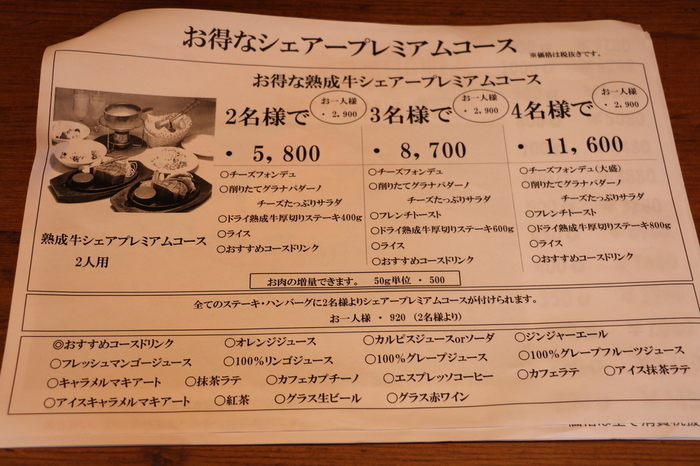 お得なシェアープレミアムコース ※価格は税抜きです。
お得な熟成牛シェアープレミアムコース
2名様で お一人様 ・2,900
・5,800
○チーズフォンデュ
○削りたてグラナパダーノ
チーズたっぷりサラダ
○ドライ熟成牛厚切りステーキ400g
○ライス
○おすすめコースドリンク
3名様で お一人様 ・2,900
・8,700
○チーズフォンデュ
○削りたてグラナパダーノ
チーズたっぷりサラダ
○フレンチトースト
○ドライ熟成牛厚切りステーキ600g
○ライス
○おすすめコースドリンク
4名様で お一人様 ・2,900
・11,600
○チーズフォンデュ(大盛)
○削りたてグラナパダーノ
チーズたっぷりサラダ
○フレンチトースト
○ドライ熟成牛厚切りステーキ800g
○ライス
○おすすめコースドリンク
熟成牛シェアプレミアムコース
2人用
お肉の増量できます。 50g単位・500
全てのステーキ・ハンバーグに2名様よりシェアープレミアムコースが付けられます。
お一人様・920(2名様より)
◎おすすめコースドリンク ○オレンジジュース ○カルピスジュースorソーダ ○ジンジャーエール
○フレッシュマンゴージュース ○100%リンゴジュース ○100%グレープジュース ○100%グレープフルーツジュース
○キャラメルマキアート ○抹茶ラテ ○カフェカプチーノ ○エスプレッソコーヒー ○カフェラテ ○アイス抹茶ラテ
○アイスキャラメルマキアート ○紅茶 ○グラス生ビール ○グラス赤ワイン